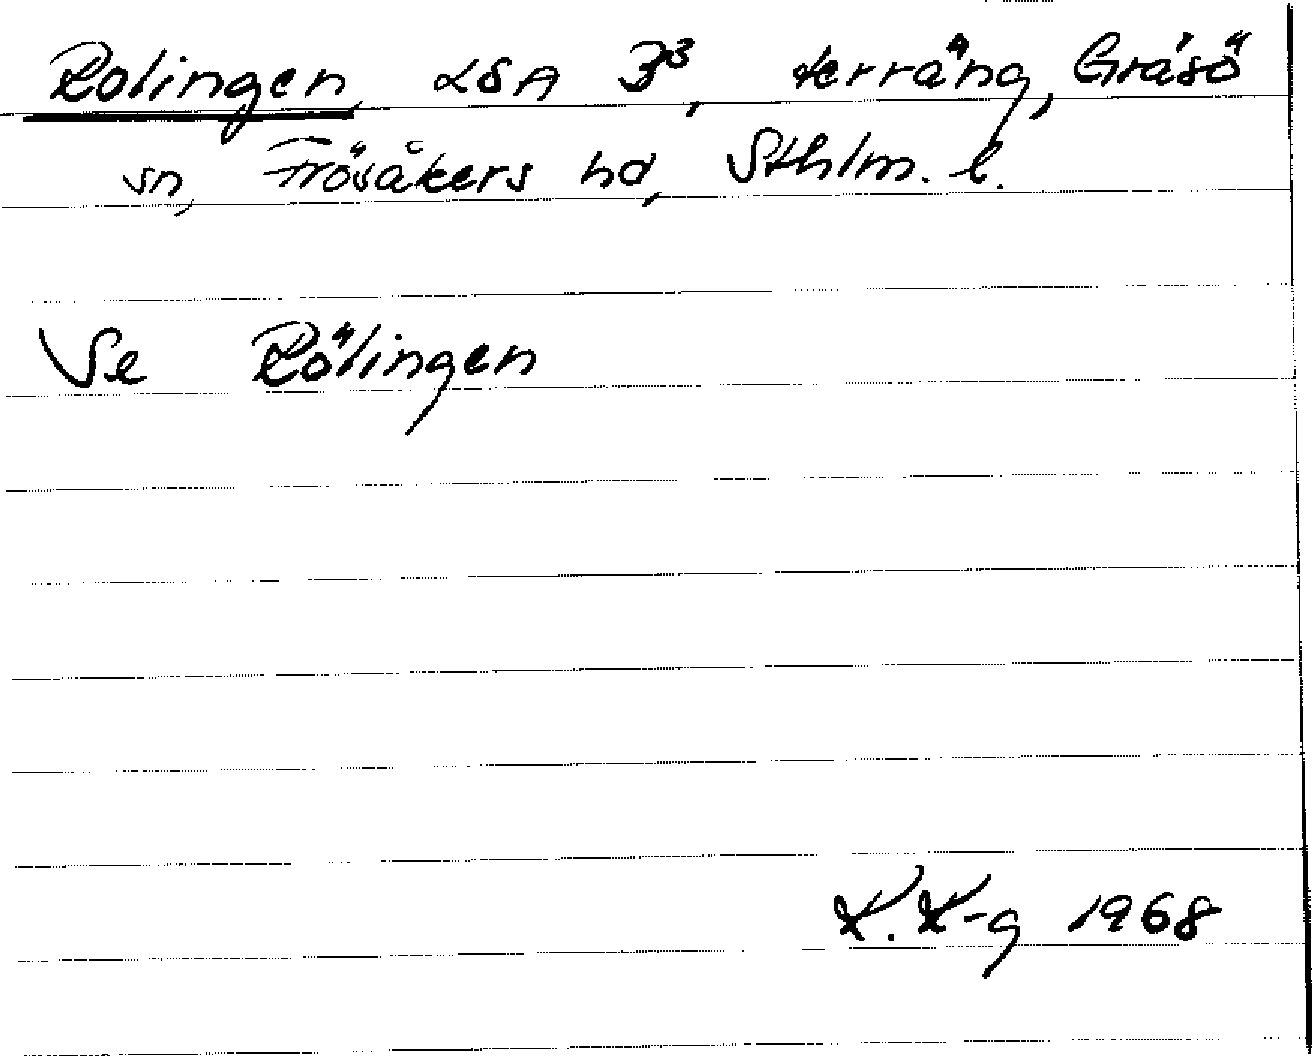 Rolingen, LSA B³, terräng, Gräsö
sn, Frösåkers hd, Sthlm. l.
Se Rölingen
K. K-g 1968